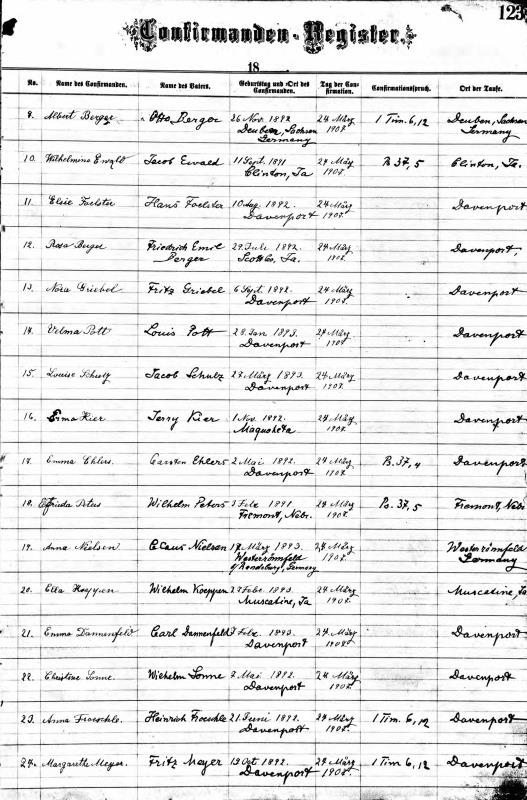 123
Confirmanden-Register.
18
No. Name des Confirmanden. Name des Vaters. Geburtstag und Ort des Confirmanden. Tag der Confirmation. Confirmationsspruch. Ort der Taufe.
9. Albert Berger Otto Berger 26 Nov. 1892 24 März 1 Tim. 6,12 Deuben, Sachsen
Deuben, Sachsen 1907. Germany
Germany
10. Wilhelmine Ewald Jacob Ewald 11 Sept. 1891 24 März Ps. 37,5 Clinton, Ia.
Clinton, Ia 1907.
11. Elsie Foelster Hans Foelster 10 Aug. 1892. 24 März Davenport
Davenport 1907.
12. Rosa Berger Friedrich Emil 29 Juli 1892. 24 März Davenport,
Berger Scott Co, Ia. 1907.
13. Nora Griebel Fritz Griebel 6 Sept. 1892. 24 März Davenport
Davenport 1907.
14. Velma Pott Louis Pott 28 Jan 1893. 24 März Davenport
Davenport 1907.
15. Louise Schulz Jacob Schulz 24 März Davenport
März 1893. 1907.
Davenport
16. Erma Kier Jerry Kier 1 Nov. 1892. 24 März Davenport
Maquoketa 1907.
17. Emma Ehlers. Carsten Ehlers 2 Mai 1892. 24 März Ps. 37,4 Davenport
Davenport 1907.
18. Frieda Peters Wilhelm Peters 3 Febr 1891 24 März Ps. 37,5 Fremont, Nebr.
Fremont, Nebr. 1907.
19. Anna Nielsen Claus Nielsen 17 März 1893. 24 März Westerrönnfeld
Westerrönnfeld 1907. Germany
b/Rendsburg, Germany
20. Ella Koeppen Wilhelm Koeppen Febr. 1893. 24 März Muscatine, Ia
Muscatine, Ia 1907.
21. Emma Dannenfeld Carl Dannenfeld Febr. 1893. 24 März Davenport
Davenport 1907.
22. Christine Sonne Wilhelm Sonne 2 Mai 1892. 24 März Davenport
Davenport 1907.
23. Anna Froeschle. Heinrich Froeschle 21 Juni 1892. 24 März 1 Tim 6,12 Davenport
Davenport 1907.
24. Margarethe Meyer. Fritz Meyer 13 Oct 1892. 24 März 1 Tim 6,12 Davenport
Davenport 1907.